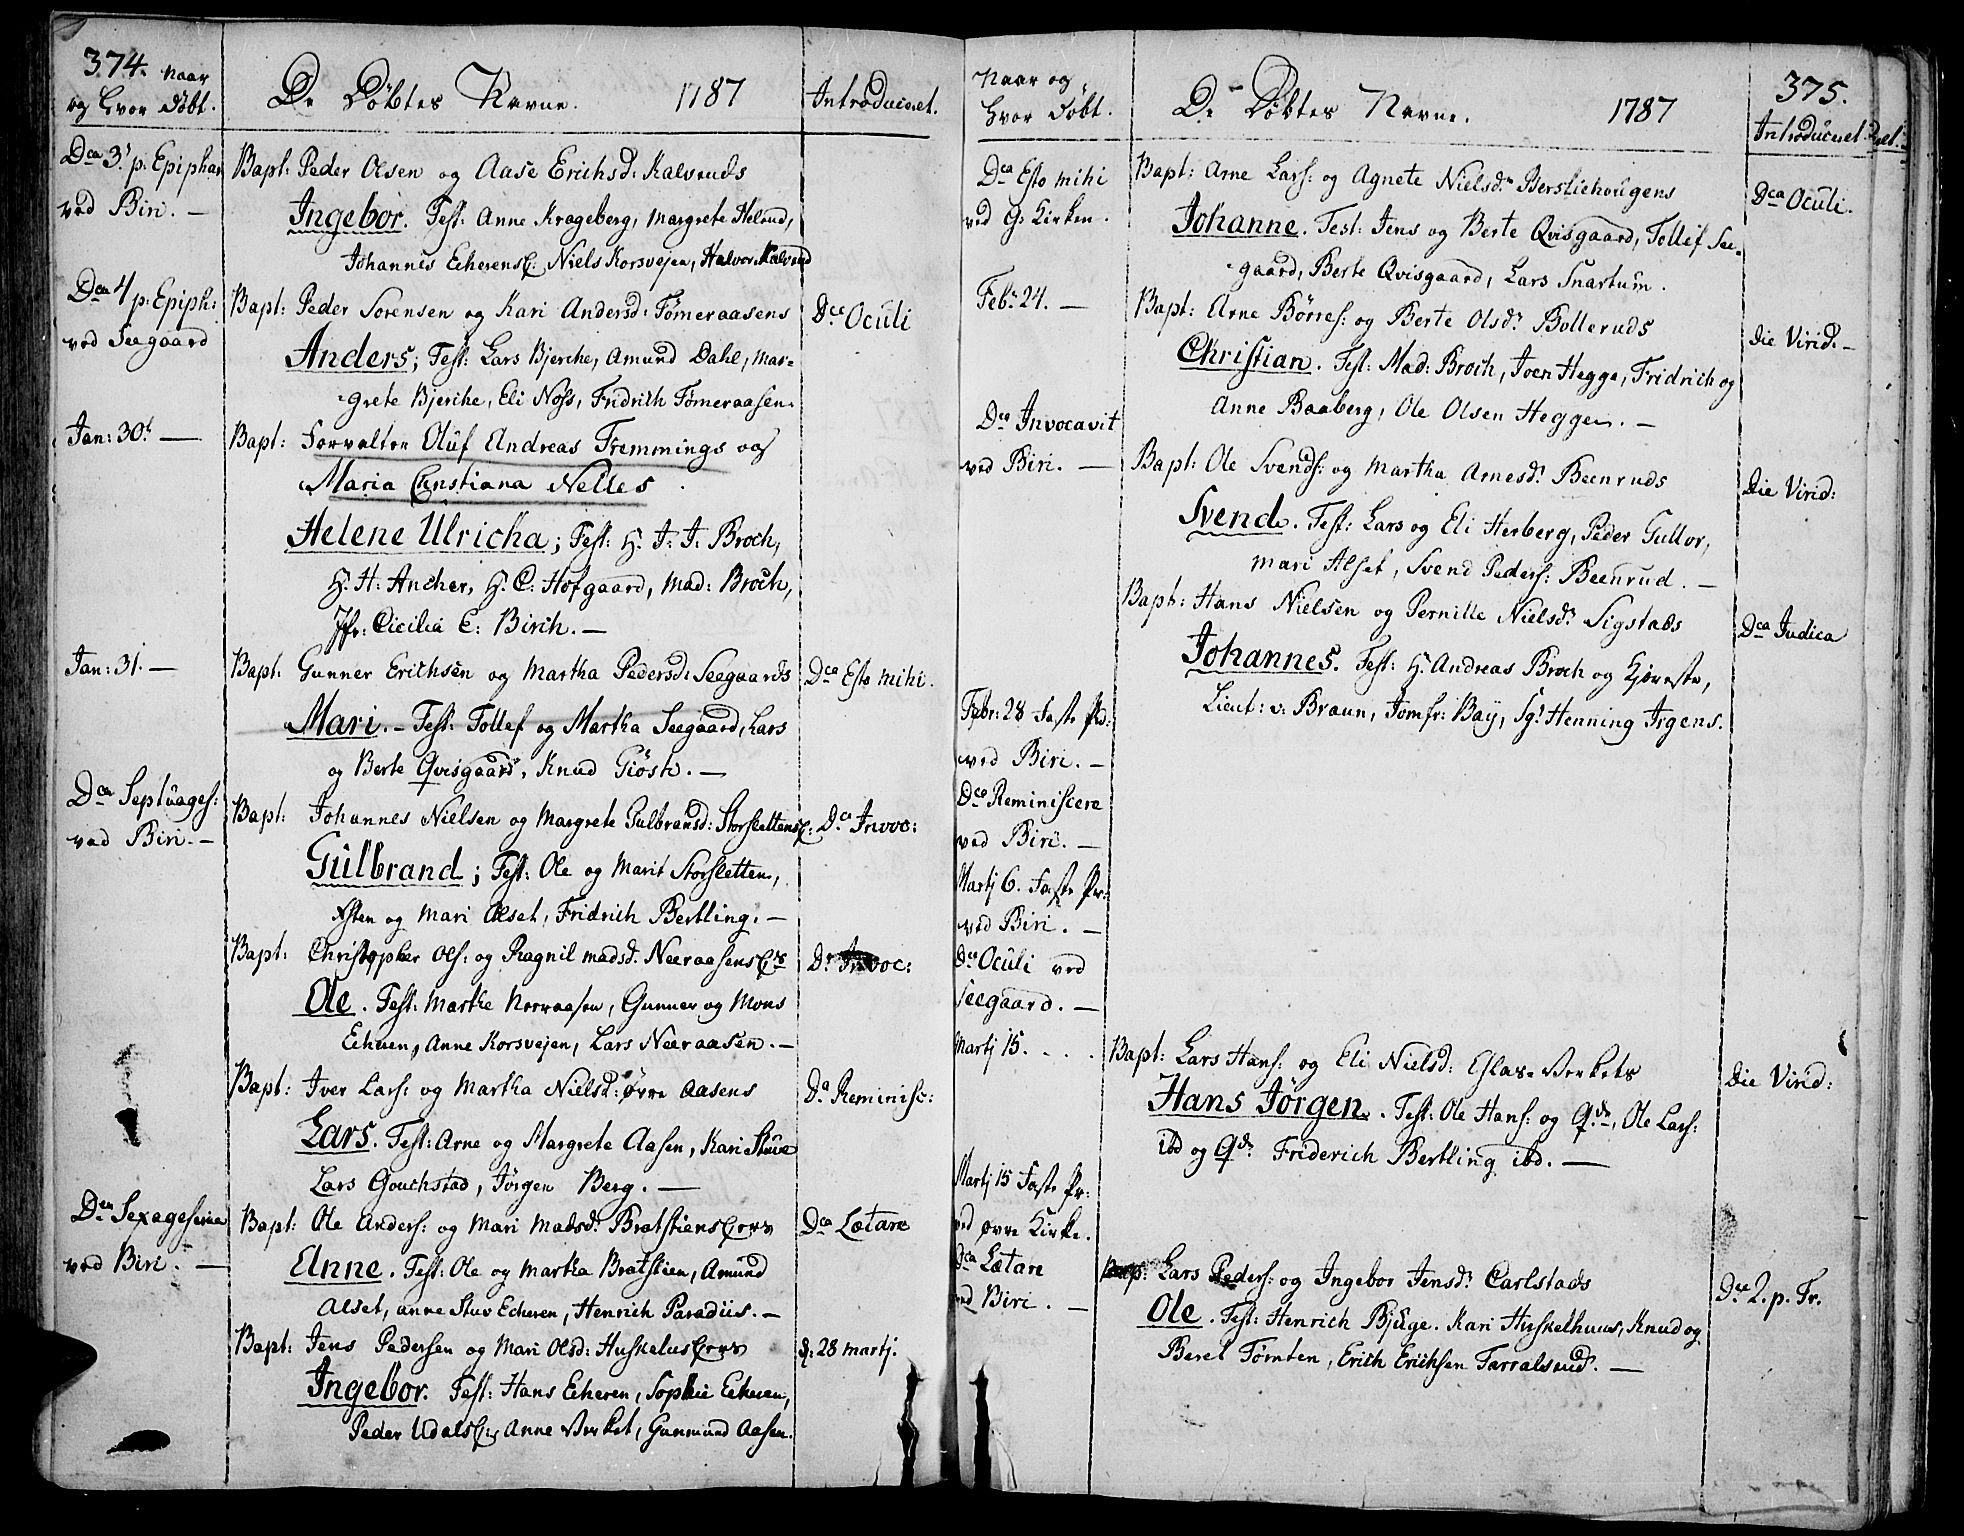 374. Naar
og Hvor Döbt.
De Döbtes Navne. 1787
Introduceret.
Dca 3. p. Epiphan
ved Biri. —
Bapt: Peder Olsen og Aase Erichsd: Kalvruds
Ingebor. Test: Anne Krageberg, Margrete Helund,
Johannes Echerens, Niels Korsvejen, Halvor Kalvrud
Dca 4 p. Epiph:
ved Seegaard
Bapt: Peder Sorensen og Kari Andersd: Tömeraasens
Dca Oculi
Anders; Test: Lars Bjerche, Amund Dahl, Mar-
grete Bjerche, Eli Noss, Fridrich Tömeraasen.
Jan: 30. —
Bapt: Forvalter Oluf Andreas Flemmings og
Maria Christiana Nelles.
Helene Ulricha; Test: H. J. J. Broch,
H. H: Ancher, H. C: Hofgaard, Mad: Broch,
Jfr: Cicilia E: Birch. —
Jan: 31. —
Bapt: Gunner Erichsen og Martha Pedersd: Seegaards
Dca Esto mihi.
Mari. — Test: Tollef og Martha Seegaard, Lars
og Berte Qvisgaard, Knud Giösli. —
Dca Septuages:
ved Biri. —
Bapt: Johannes Nielsen og Margrete Gulbransd: Storslettens
Dca Invoc:
Gulbrand; Test: Ole og Marit Storsletten,
Asten og Mari Alset, Fridrich Bertling. —
Bapt: Christopher Ols: og Ragnil Madsd. Neeraasens
Dca Invoc:
Ole. Test: Marthe Nerraasen, Gunner og Mons
Echren, Anne Korsvejen, Lars Neeraasen. —
Bapt: Iver Lars: og Martha Nielsd: Övre Aasens
Dca Reminisc:
Lars. Test: Arne og Margrete Aasen, Kari Stuve
Lars Gouchstad, Jörgen Berg. —
Dca Sexagesima
ved Biri. —
Bapt: Ole Anders: og Mari Madsd. Bratstiens
Dca Lætare
Anne. Test: Ole og Martha Bratstien, Amund
Alset, Anne Stuv Echeren, Henrich Paradiis. —
Bapt: Jens Pedersen og Mari Olsd: Huskelus
d: 28 Martj.
Ingebor. Test: Hans Echeren, Sophie Echren,
Peder Udals, Anne Verket, Gunmund Aasen.
Naar og
Hvor Döbt.
De Döbtes Navne. 1787
375.
Introduceret.
Dca Esto mihi
ved G. Kirken.
Bapt: Arne Lars: og Agnete Nielsd. Berstiehougens
Dca Oculi.
Johanne. Test: Jens og Berte Qvisgaard, Tollef See-
gaard, Berte Qvisgaard, Lars Snartum.
Febr. 24. —
Bapt: Arne Börres: og Berte Olsd. Bolleruds
Die Virid. —
Christian. Test: Mad: Broch, Joen Hegge, Fridrich og
Anne Baaberg, Ole Olsen Heggen. —
Dca Invocavit
ved Biri. —
Bapt: Ole Svends: og Martha Arnesd. Beenruds
Die Virid:
Svend. Test: Lars og Eli Herberg, Peder Gullor,
Mari Alset, Svend Peders: Beenrud. —
Bapt: Hans Nielsen og Pernille Nielsd. Sigstads
Dca Judica
Johannes. Test: H. Andreas Broch og Kjæreste,
Lieut: v. Braun, Jomfr: Bay, Sr. Henning Irgens.
Febr: 28 Faste Præd:
ved Biri. —
Dca Reminiscere
ved Biri. —
Martj 6. Faste Pr:
ved Biri. —
Dca Oculi ved
Seegaard. —
Martj 15. . . .
Bapt: Lars Hans: og Eli Nielsd: Glas-Verkets
Die Virid:
Hans Jörgen. Test: Ole Hans: og Qde, Ole Lars:
ibd og Qde Friderich Bertling ibd. —
Martj 15 Faste Pr:
ved Övre Kirke.
Dca Lætare
ved Biri. —
Bapt: Lars Peders: og Ingebor Jensd. Carlstads
Dca 2. p. Tr.
Ole. Test: Henrich Bjuge. Kari Huskelhuus, Knud og
Beret Tömten, Erich Erichsen Tarralsrud. —